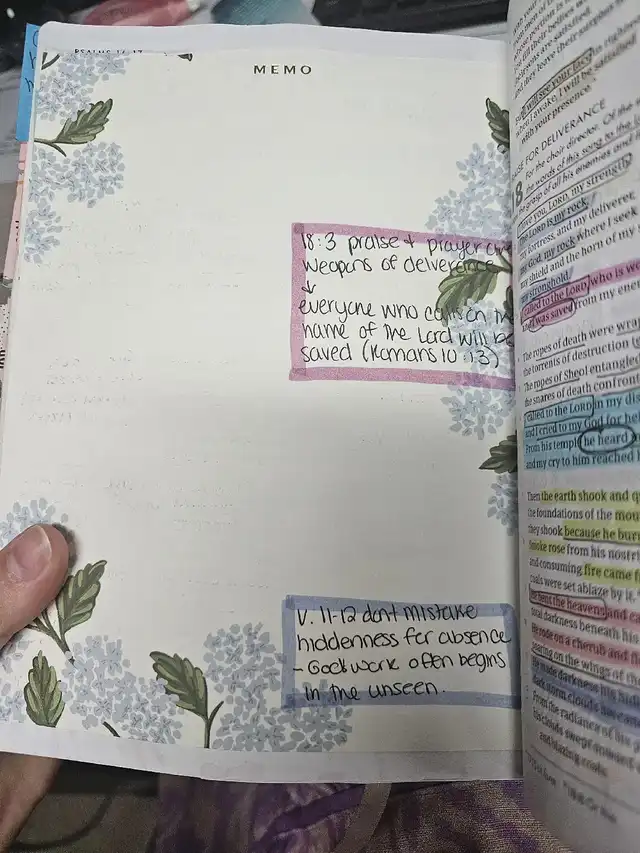 MEMO
18:3 praise & prayer are
weapons of deliverance
↓
everyone who calls on the
name of the Lord will be
saved (Romans 10:13)
V. 11-12 dont mistake
hiddenness for absence
- God work often begins
in the unseen.
and they leave their surplus
will see your face in
when I awake, I will be satisfied
with your presence.
FOR DELIVERANCE
For the choir director. Of the
the words of this song to the
the grasp of all his enemies and
love you, LORD, my strength.
The LORD is my rock,
my fortress, and my deliverer,
my God, my rock where I seek
my shield and the horn of my
my stronghold.
I called to the LORD, who is
and I was saved from my
The ropes of death were
the torrents of destruction
The ropes of Sheol entangled
the snares of death
I called to the LORD in my
and I cried to my God for
From his temple he heard
and my cry to him reached
Then the earth shook and
the foundations of the
they shook because he
Smoke rose from his
and consuming fire came
coals were set ablaze by it.
He bent the heavens and
total darkness beneath his
He rode on a cherub and
soaring on the wings of the
He made darkness his
dark storm clouds his
From the radiance of his
his clouds swept onward
and blazing coals.